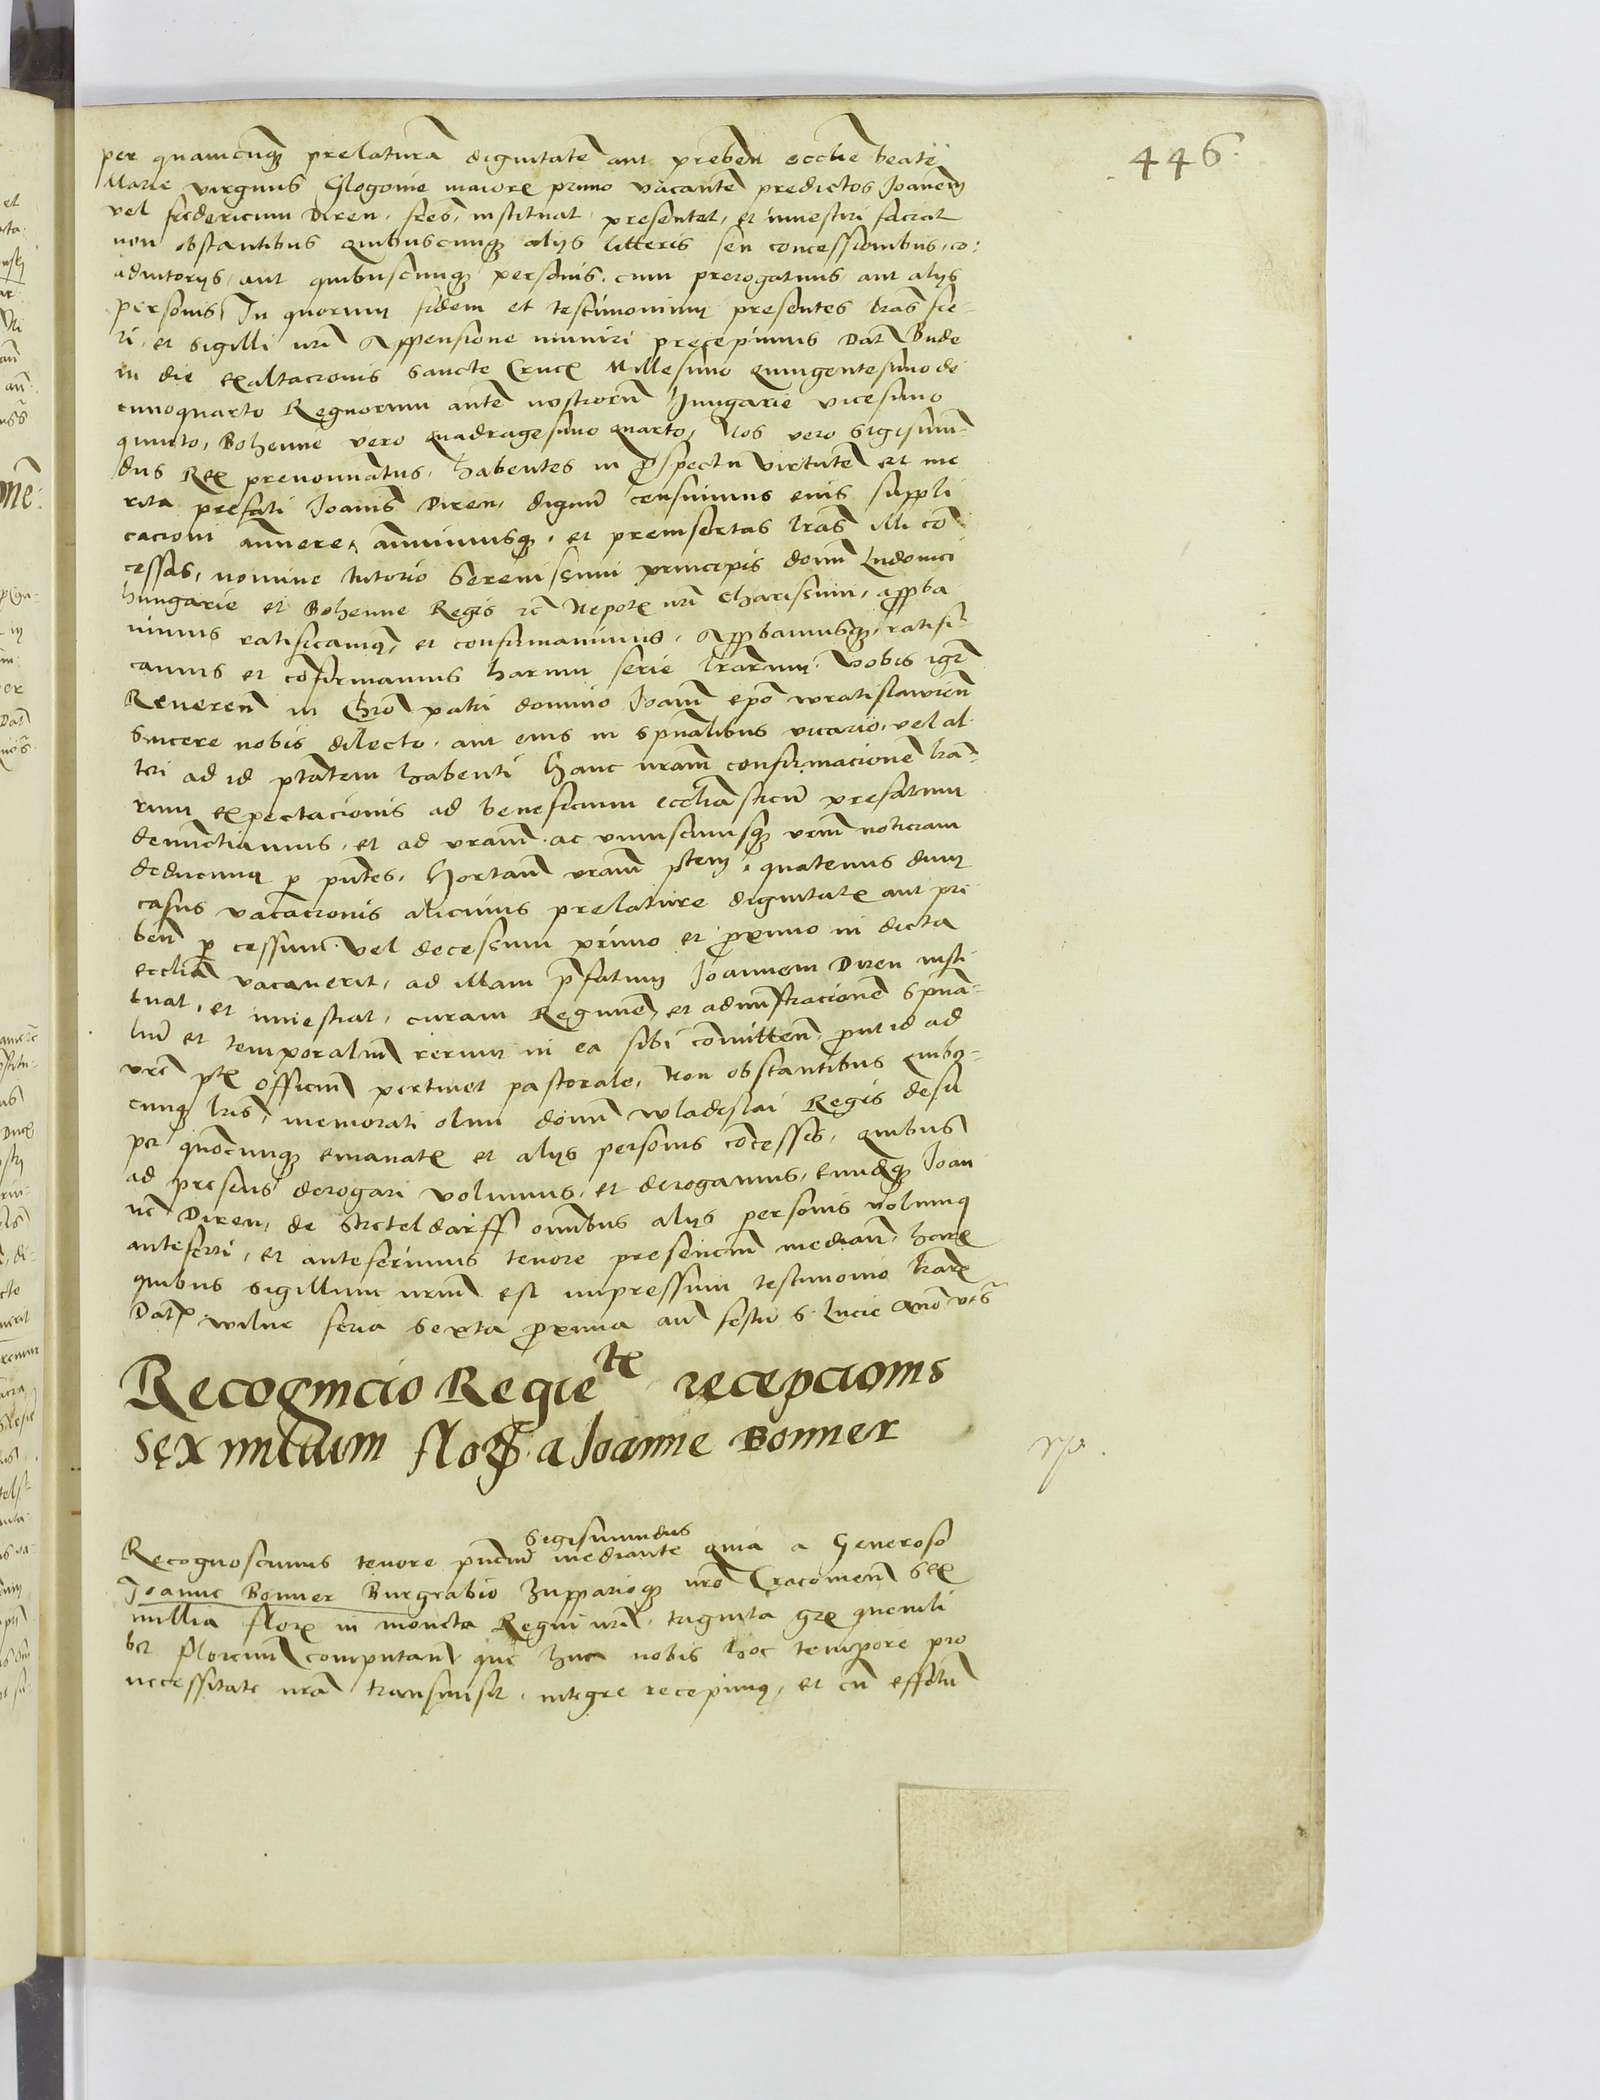 446.
per quamcunq prelatura dignitate aut preben ecclie beate
Marie virginis Glogovie maiore primo vacante predictos Joanem
vel fridericum Diren. fres, instituat presentet, et investiri faciat
non obstantibus quibuscunq alijs litteris seu concessionibus, co:
adiutorijs, aut quibuscunq personis. cum prerogativis aut alijs
personis In quorum fidem et testimonium presentes lras fie-
ri, et sigilli nri Appensione muniri precepimus Dat Bude
in die exaltacionis Sancte Cruc Millesimo Quingentesimo de
cimoquarto Regnorum aute nostrorum Hungarie vicesimo
quinto, Bohemie vero Quadragesimo quarto, Nos vero Sigismu-
dus Rex prenominatus, habentes in prospectu virtute et me
rita prefati Joanis Diren, dignu censuimus eius suppli
cacioni annuere, annuimusq, et preinsertas lras illi con
cessas, nomine tutorio Serenissimi principis domi Ludovici
Hungarie et Bohemie Regis etc Nepot nri charissimi, approba
vimus ratificamq, et confirmavimus, Approbamusq, ratifi-
camus et confirmamus harum serie lrarum. Vobis igr
Reveren in Chro patri domino Joani epo wratislavien
sincere nobis dilecto. aut eius in spualibus vicario, vel al
teri ad id ptatem habenti hanc nram confirmacione lra-
rum expectacionis ad beneficium ecclasticu prefatum
denunctiamus, et ad vram ac uniuscuiusq vrm noticiam
deducimq p pntes, Hortan vram ptem, quatenus dum
casus vacacionis alicuius prelature dignitat aut pre
ben p cessum vel decessum primo et proximo in dicta
ecclia vacaverit, ad illam prefatum Joannem Diren insti
tuat, et investiat, curam Regimen, et administracione spua-
liu et temporaliu rerum in ea sibi comitten, prout id ad
vre pt officiu pertinet pastorale, Non obstantibus quibus-
cunq lris, memorati olim domi wladislai Regis desu
per quomodocunq emanat et alijs personis concessis, quibus
ad presens derogari volumus, et derogamus, eundemq Joan
ne Diren, de omnibus alijs personis volumus
anteferri, et anteferimus tenore presencium median, har
quibus sigillum nrum est impressum testimonio lrar
Dat wilne feria sexta proxima an festu S. Lucie Anno vts
Recognicio Regie tis recepcionis
sex millium flor. a Joanne Bonner
Sigismundus
Recognoscimus tenore pnciu mediante quia a Generoso
Joanne Bonner Burgrabio Zupparioq nro Cracovien sex
millia flor in moneta Regni nri, triginta gr quemli
bet florenum computan que huc nobis hoc tempore pro
necessitate nra transmisit, integre recepimq, et cu effectu